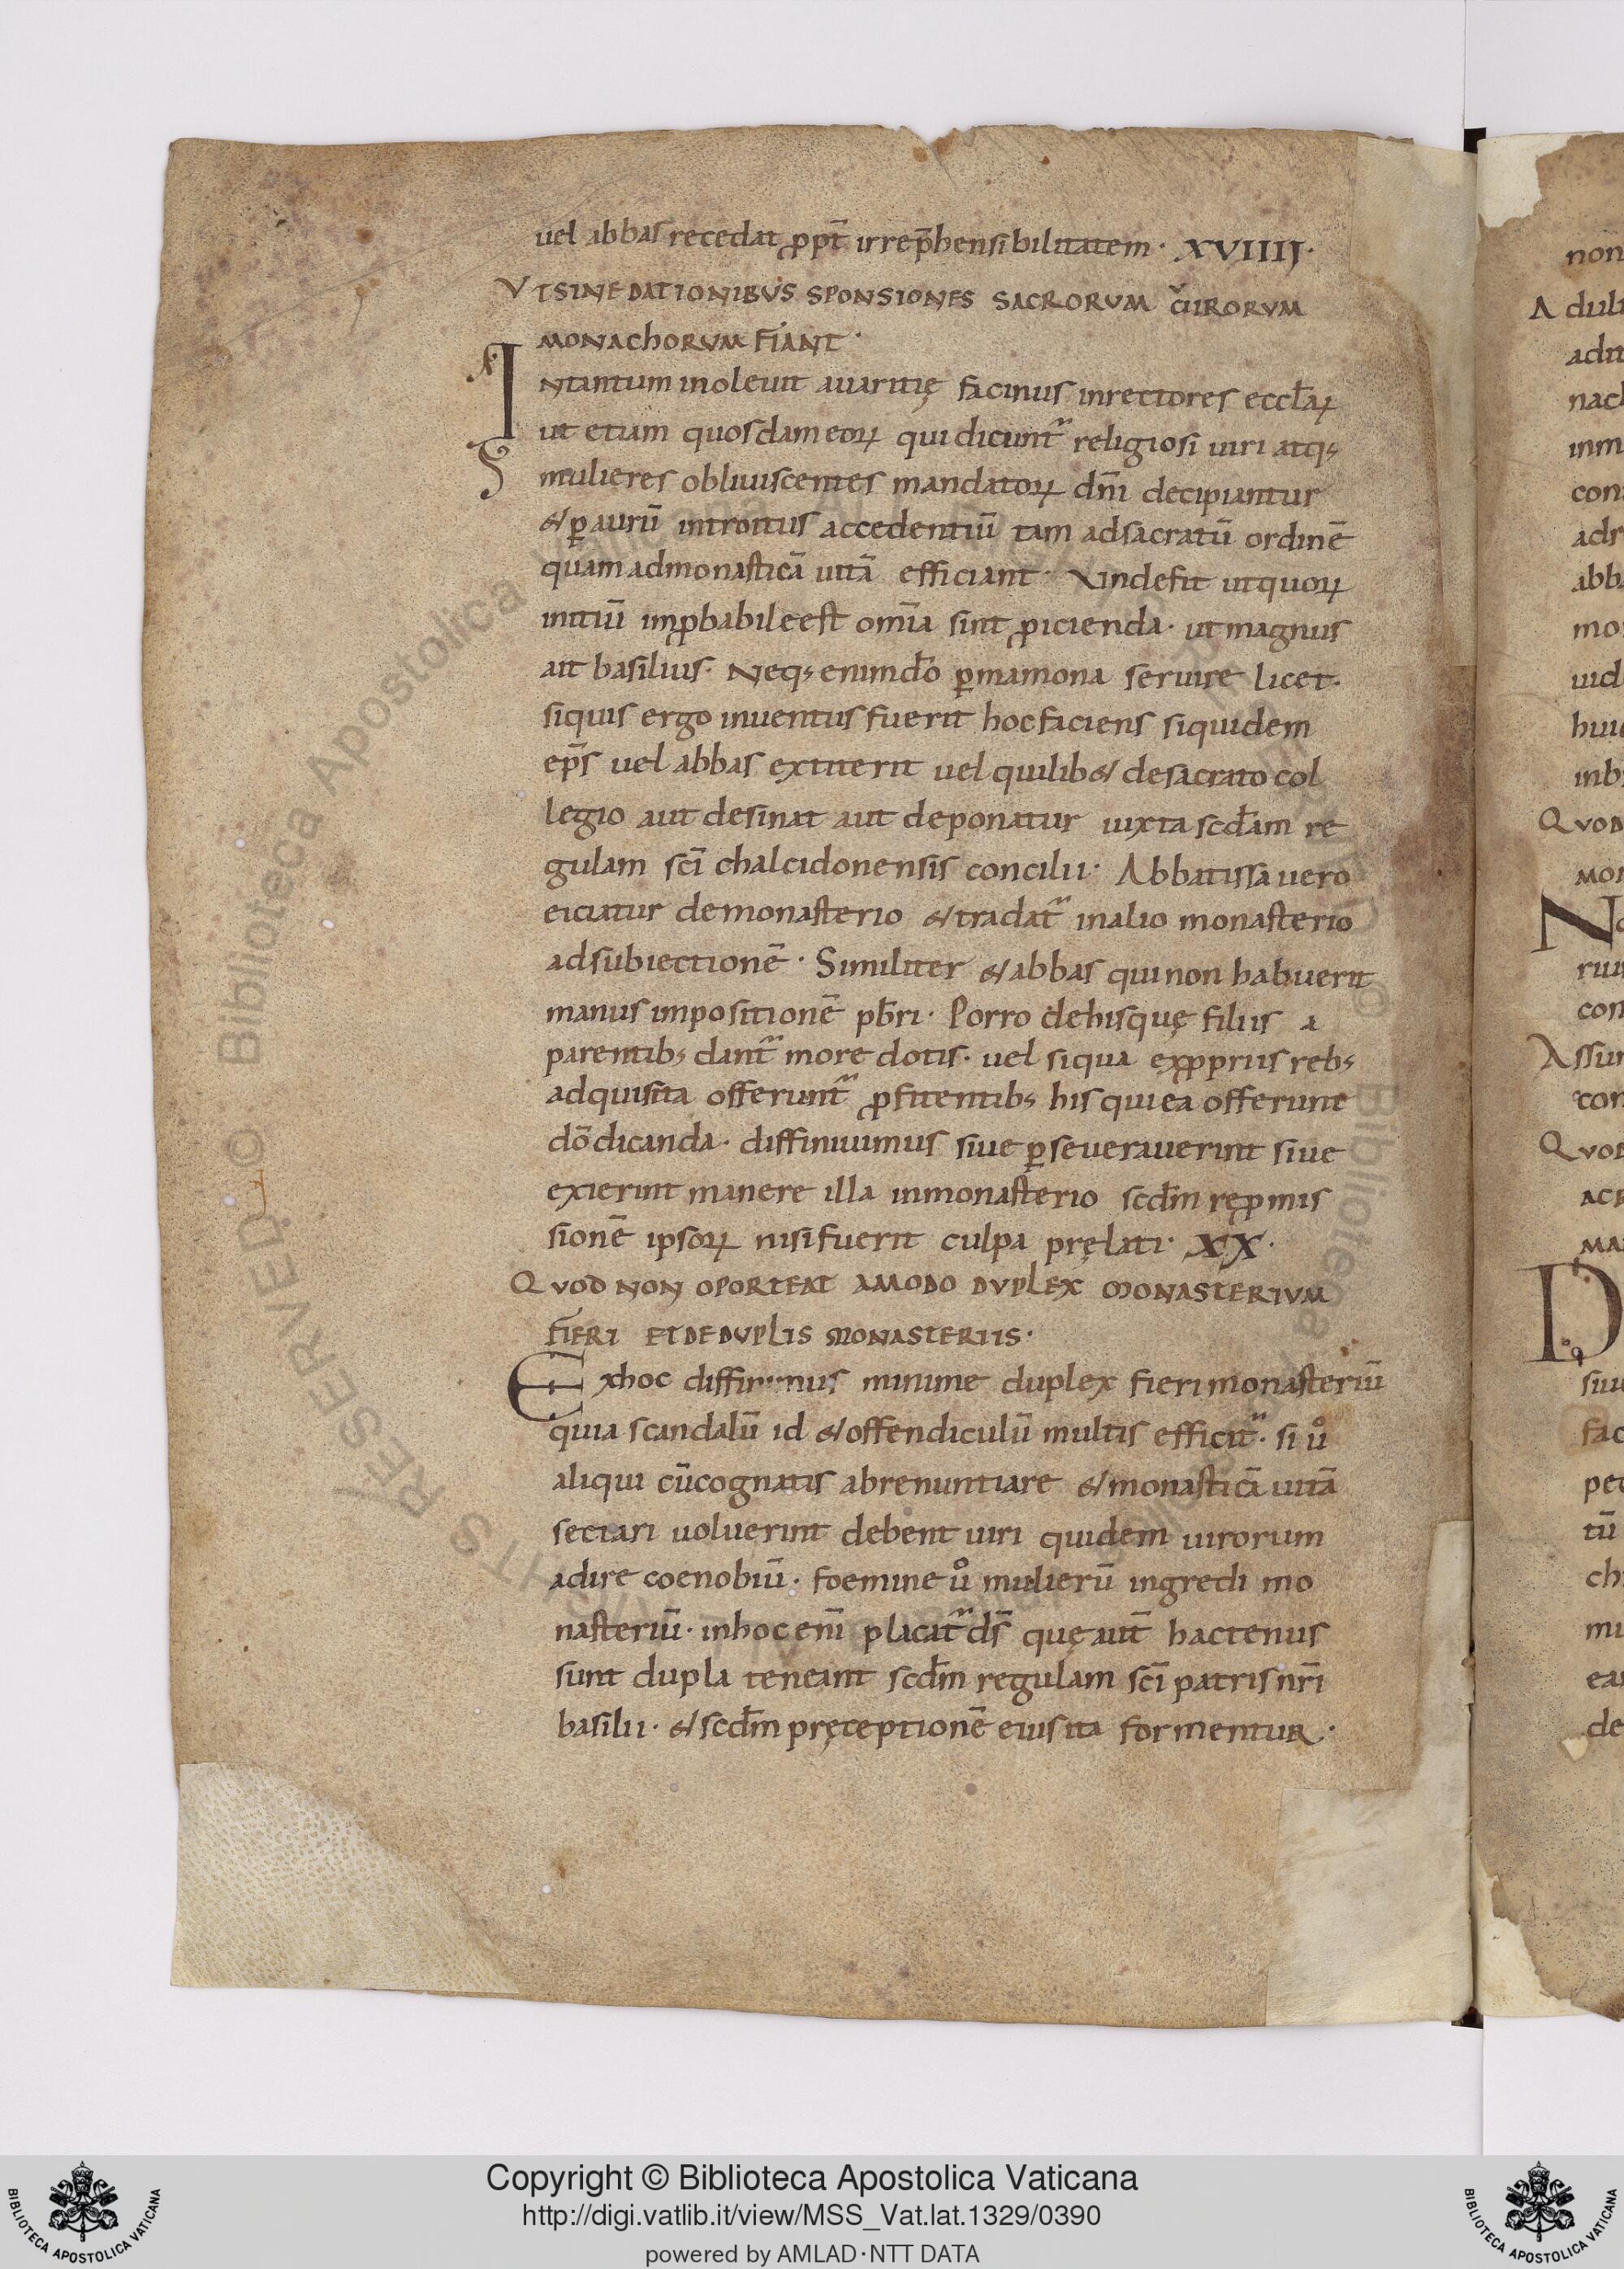 uel abbas recedat ꝓpt̄ irrep̄hensibilitatem · XVIIIJ ·
VT SINE DATIONIBUS SPONSIONES SACRORUM VIRORVM
MONACHORUM FIANT ·
INtantum inoleuit auaritię facinus inrectores eccl̄aꝝ
ut etiam quosdam eoꝝ qui dicunt᷑ religiosi uiri atq;
mulieres obliuiscentes mandatoꝝ dn̄i decipiantur
& ꝑ aurū introitus accedentiū tam adsacratū ordinē
quam admonasticā uitā efficiant · Vndefit utquoꝝ
initiū imꝓbabile est om̄ia sint ꝓicienda · ut magnus
ait basilius · Neq; enim do̅ ꝑ mamona seruire licet ·
siquis ergo inuentus fuerit hoc faciens siquidem
ep̄s uel abbas extiterit uel quilib& desacrato col
legio aut desinat aut deponatur iuxta scd̄am re
gulam sc̄i chalcidonensis concilii · Abbatissa uero
eiciatur demonasterio & tradat᷑ inalio monasterio
adsubiectionē · Similiter & abbas qui non habuerit
manus impositionē pb̄ri · Porro dehis quę filiis a
parentib; dant᷑ more dotis · uel siqua exꝓpriis reb;
adquisita offerunt᷑ ꝓfitentib; his qui ea offerunt
dō dicanda · diffiniuimus siue ꝑseuerauerint siue
exierint manere illa inmonasterio scd̄m reꝓmis
sionē ipsoꝝ nisi fuerit culpa pręlati · XX ·
QVOD NON OPORTEAT AMODO DVPLEX MONASTERIVM
FIERI ET DE DVPLIS MONASTERIIS ·
Exhoc diffinimus minime duplex fieri monasteriū
quia scandalū id & offendiculū multis efficit᷑ · si uo̅
aliqui cū cognatis abrenuntiare & monasticā uitā
sectari uoluerint debent uiri quidem uirorum
adire coenobiū · foemine uo̅ mulierū ingredi mo
nasteriū · inhoc eni̅ placat᷑ ds̄ quę aut̄ hactenus
sunt dupla teneant scd̄m regulam sc̄i patris nr̄i
basilii · & scd̄m pręceptionē eius ita formentur ·
non
A dult
adit
nach
inm
con
adr
abb
mo
uid
huic
inb
QVOD
MON
N
riu
con
Assum
con
QVOD
MA
D
siu
fac
pec
tū
ch
mu
ea
de
Copyright © Biblioteca Apostolica Vaticana
http://digi.vatlib.it/view/MSS_Vat.lat.1329/0390
powered by AMLAD·NTT DATA
BIBLIOTECA APOSTOLICA VATICANA
BIBLIOTECA APOSTOLICA VATICANA